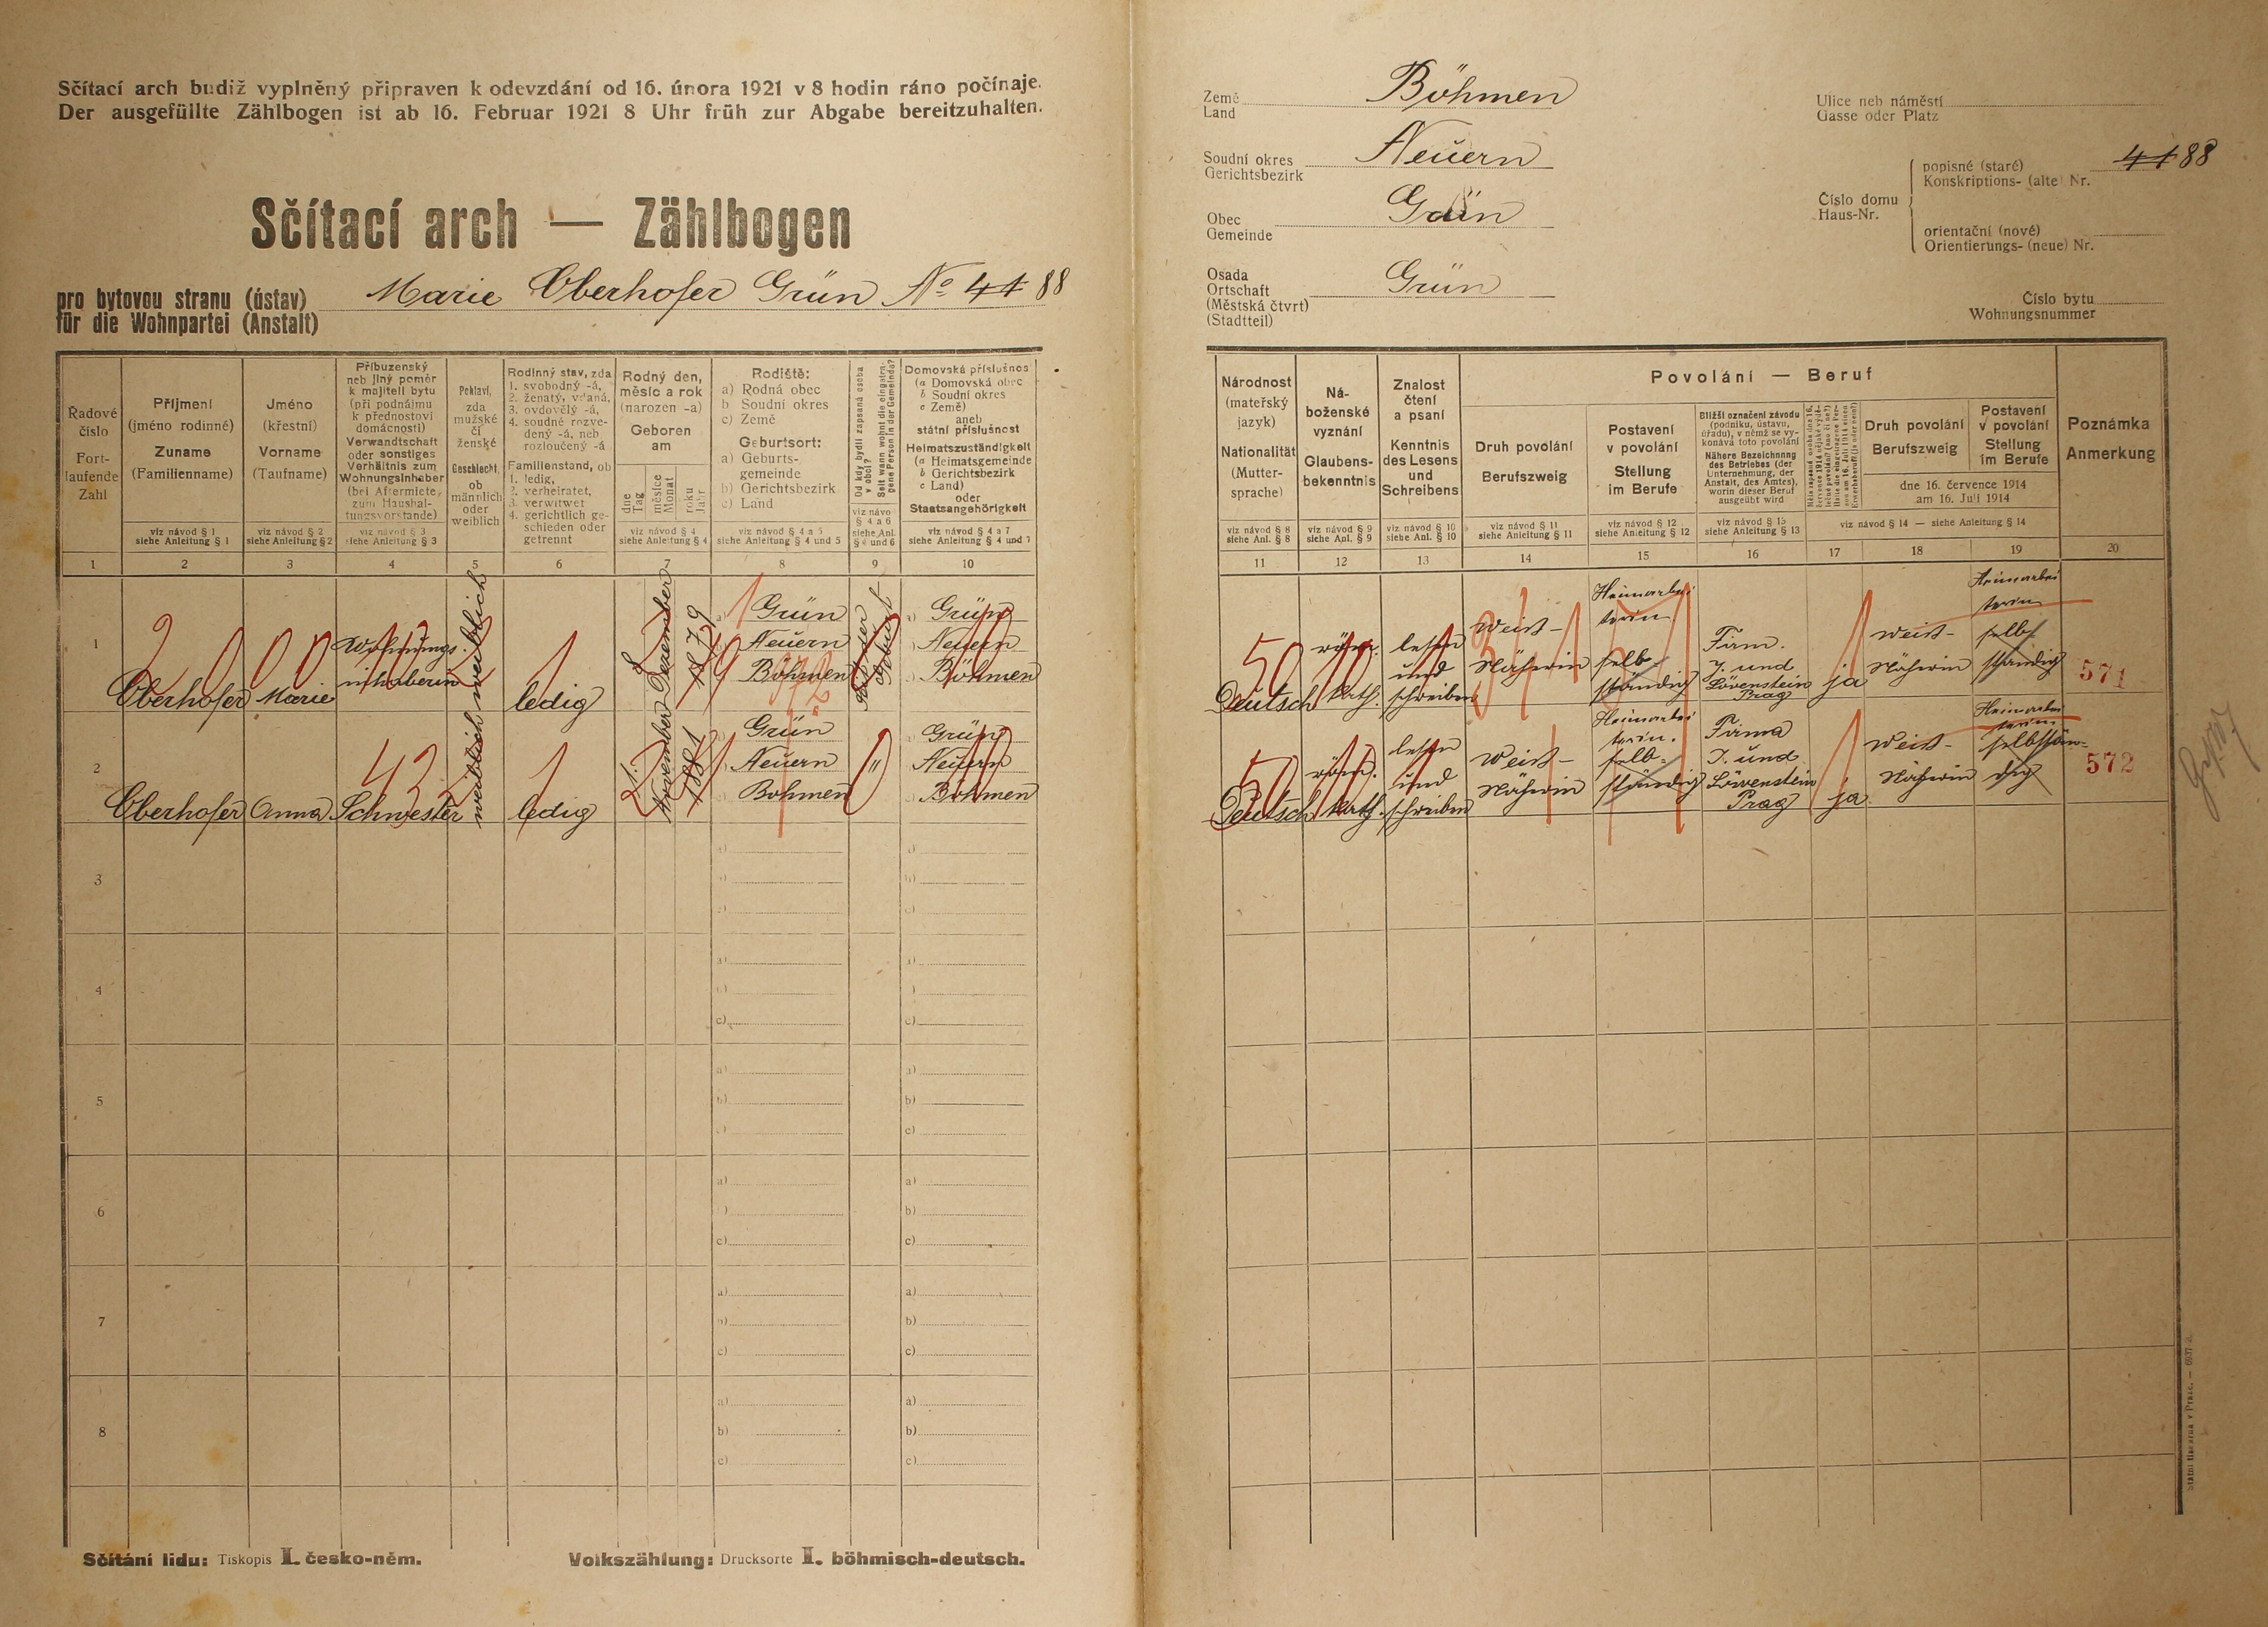 Sčítací arch budiž vyplněný připraven k odevzdání od 16. února 1921 v 8 hodin ráno počínaje.
Der ausgefüllte Zählbogen ist ab 16. Februar 1921 8 Uhr früh zur Abgabe bereitzuhalten.
Sčítací arch — Zählbogen
pro bytovou stranu (ústav)
für die Wohnpartei (Anstalt)
Marie Oberhofer Grün No 41 88
Řadové číslo
Fort-
laufende
Zahl
1
Příjmení
(jméno rodinné)
Zuname
(Familienname)
viz návod § 1
siehe Anleitung § 1
2
Jméno
(křestní)
Vorname
(Taufname)
viz návod § 2
siehe Anleitung § 2
3
Příbuzenský
neb jiný poměr
k majiteli bytu
(při podnájmu
k přednostovi
domácnosti)
Verwandtschaft
oder sonstiges
Verhältnis zum
Wohnungsinhaber
(bei Aftermiete,
zum Haushal-
tungsvorstande)
viz návod § 3
siehe Anleitung § 3
4
Pohlaví,
zda
mužské
či
ženské
Geschlecht,
ob
männlich
oder
weiblich
5
Rodinný stav, zda
1. svobodný -á,
2. ženatý, vdaná,
3. ovdovělý -á,
4. soudně rozve-
dený -á, neb
rozloučený -á
Familienstand, ob
1. ledig,
2. verheiratet,
3. verwitwet
4. gerichtlich ge-
schieden oder
getrennt
6
Rodný den,
měsíc a rok
(narozen -a)
Geboren
am
dne
Tag
měsíce
Monat
roku
Jahr
viz návod § 4
siehe Anleitung § 4
7
Rodiště:
a) Rodná obec
b) Soudní okres
c) Země
Geburtsort:
a) Geburts-
gemeinde
b) Gerichtsbezirk
c) Land
viz návod § 4 a 5
siehe Anleitung § 4 und 5
8
Od kdy bydlí zapsaná osoba
v obci?
Seit wann wohnt die eingetra-
gene Person in der Gemeinde?
viz návod
§ 4 a 6
siehe Anl.
§ 4 und 6
9
Domovská příslušnost
(a Domovská obec
b Soudní okres
c Země)
aneb
státní příslušnost
Heimatszuständigkeit
(a Heimatsgemeinde
b Gerichtsbezirk
c Land)
oder
Staatsangehörigkeit
viz návod § 4 a 7
siehe Anleitung § 4 und 7
10
1
Oberhofer
Marie
Wohnungs-
inhaberin
weiblich
ledig
8
Dezember
1879
Grün
Neuern
Böhmen
Grün
Neuern
Böhmen
2
Oberhofer
Anna
Schwester
weiblich
ledig
21.
November
1881
Grün
Neuern
Bohmen
"
Grün
Neuern
Böhmen
3
4
5
6
7
8
Sčítání lidu: Tiskopis I. česko-něm.
Volkszählung: Drucksorte I. böhmisch-deutsch.
Země
Land
Böhmen
Soudní okres
Gerichtsbezirk
Neuern
Obec
Gemeinde
Grün
Osada
Ortschaft
(Městská čtvrt)
(Stadtteil)
Grün
Ulice neb náměstí
Gasse oder Platz
Číslo domu
Haus-Nr.
popisné (staré)
Konskriptions- (alte) Nr.
41 88
orientační (nové)
Orientierungs- (neue) Nr.
Číslo bytu
Wohnungsnummer
Národnost
(mateřský
jazyk)
Nationalität
(Mutter-
sprache)
viz návod § 8
siehe Anl. § 8
11
Ná-
boženské
vyznání
Glaubens-
bekenntnis
viz návod § 9
siehe Anl. § 9
12
Znalost
čtení
a psaní
Kenntnis
des Lesens
und
Schreibens
viz návod § 10
siehe Anl. § 10
13
Povolání — Beruf
Druh povolání
Berufszweig
viz návod § 11
siehe Anleitung § 11
14
Postavení
v povolání
Stellung
im Berufe
viz návod § 12
siehe Anleitung § 12
15
Bližší označení závodu
(podniku, ústavu,
úřadu), v němž se vy-
konává toto povolání
Nähere Bezeichnung
des Betriebes (der
Unternehmung, der
Anstalt, des Amtes),
worin dieser Beruf
ausgeübt wird
viz návod § 13
siehe Anleitung § 13
16
17
Druh povolání
Berufszweig
Postavení
v povolání
Stellung
im Berufe
dne 16. července 1914
am 16. Juli 1914
viz návod § 14 — siehe Anleitung § 14
18
19
Poznámka
Anmerkung
20
Deutsch
röm.
kath.
lesen
und
schreiben
Weiß-
Näherin
Heimarbei
terin
selb-
ständig
Firm.
J. und
Lövenstein
Prag
ja
Weiß-
Näherin
Heimarbei
terin
selbst
ständig
571
Deutsch
röm.
kath.
lesen
und
schreiben
Weiß-
Näherin
Heimarbei
terin.
selb-
ständig
Firma
J. und
Löwenstein
Prag
ja
Weiß-
Näherin
Heimarbei
terin
selbstän-
dig
572